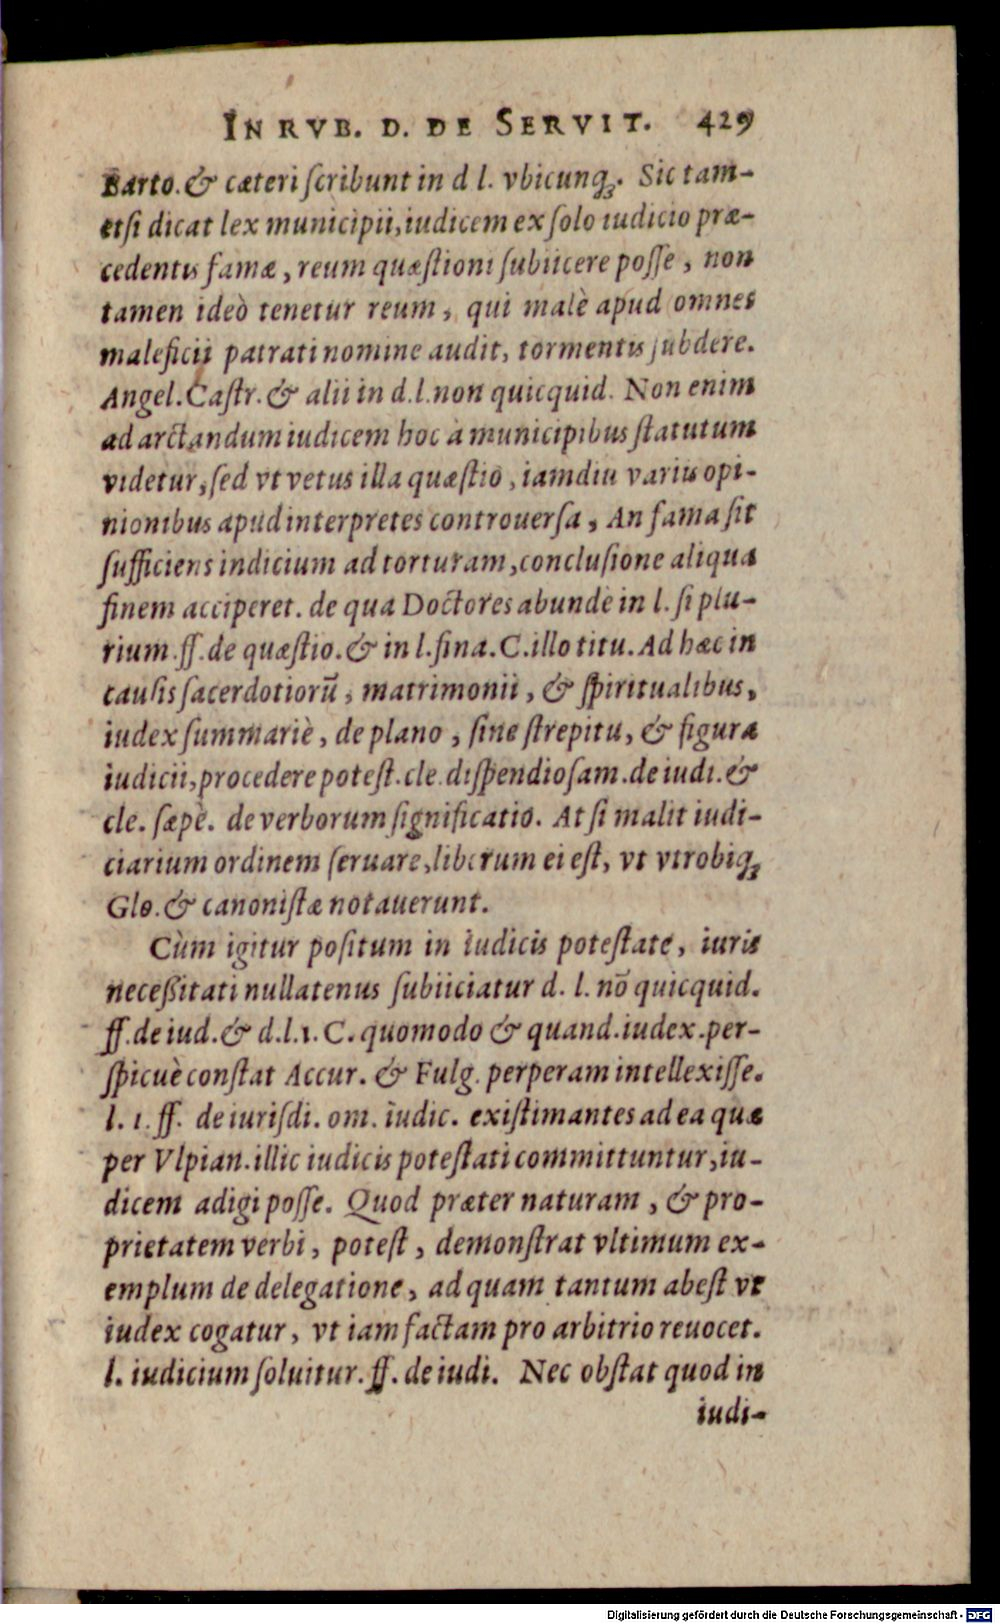 IN RVB. D. DE SERVIT. 429
Barto. & cæteri ſcribunt in d l. vbicunqꝫ. Sic tam-
etſi dicat lex municipii, iudicem ex ſolo iudicio præ-
cedentis famæ, reum quæſtioni ſubiicere poſſe, non
tamen ideò tenetur reum, qui malè apud omnes
maleficii patrati nomine audit, tormentis ſubdere.
Angel. Caſtr. & alii in d. l. non quicquid. Non enim
ad arctandum iudicem hoc à municipibus ſtatutum
videtur, ſed vt vetus illa quæſtio, iamdiu variis opi-
nionibus apud interpretes controuerſa, An fama ſit
ſufficiens indicium ad torturam, concluſione aliqua
finem acciperet. de qua Doctores abunde in l. ſi plu-
rium. ff. de quæſtio. & in l. fina. C. illo titu. Ad hæc in
cauſis ſacerdotiorū, matrimonii, & ſpiritualibus,
iudex ſummariè, de plano, ſine ſtrepitu, & figura
iudicii, procedere poteſt. cle. diſpendioſam. de iudi. &
cle. ſæpè. de verborum ſignificatio. At ſi malit iudi-
ciarium ordinem ſeruare, liberum ei eſt, vt vtrobiqꝫ
Glo. & canoniſtæ notauerunt.
Cùm igitur poſitum in iudicis poteſtate, iuris
neceßitati nullatenus ſubiiciatur d. l. nō quicquid.
ff. de iud. & d. l. 1. C. quomodo & quand. iudex. per-
ſpicuè conſtat Accur. & Fulg. perperam intellexiſſe.
l. 1. ff. de iuriſdi. om. iudic. exiſtimantes ad ea quæ
per Vlpian. illic iudicis poteſtati committuntur, iu-
dicem adigi poſſe. Quod præter naturam, & pro-
prietatem verbi, poteſt, demonſtrat vltimum ex-
emplum de delegatione, ad quam tantum abeſt vt
iudex cogatur, vt iam factam pro arbitrio reuocet.
l. iudicium ſoluitur. ff. de iudi. Nec obſtat quod in
iudi-
Digitalisierung gefördert durch die Deutsche Forschungsgemeinschaft - DFG